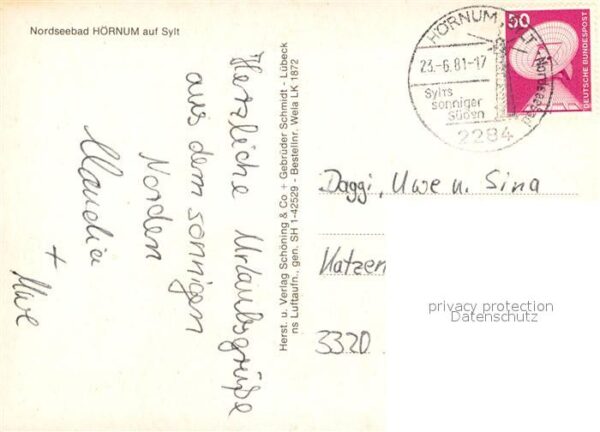 Nordseebad HÖRNUM auf Sylt
Herzliche Urlaubsgrüße
aus dem sonnigen
Norden
Claudia
+ Uwe
Herst. u. Verlag Schöning & Co + Gebrüder Schmidt - Lübeck
ns Luftaufn., gen. SH 1-42529 - Bestellnr. Wela LK 1872
HÖRNUM SYLT
Nordseebad
23.-6.81-17
Sylts
sonniger
Süden
2284
50
DEUTSCHE BUNDESPOST
Daggi, Uwe u. Sina
Katzen
3320
privacy protection
Datenschutz